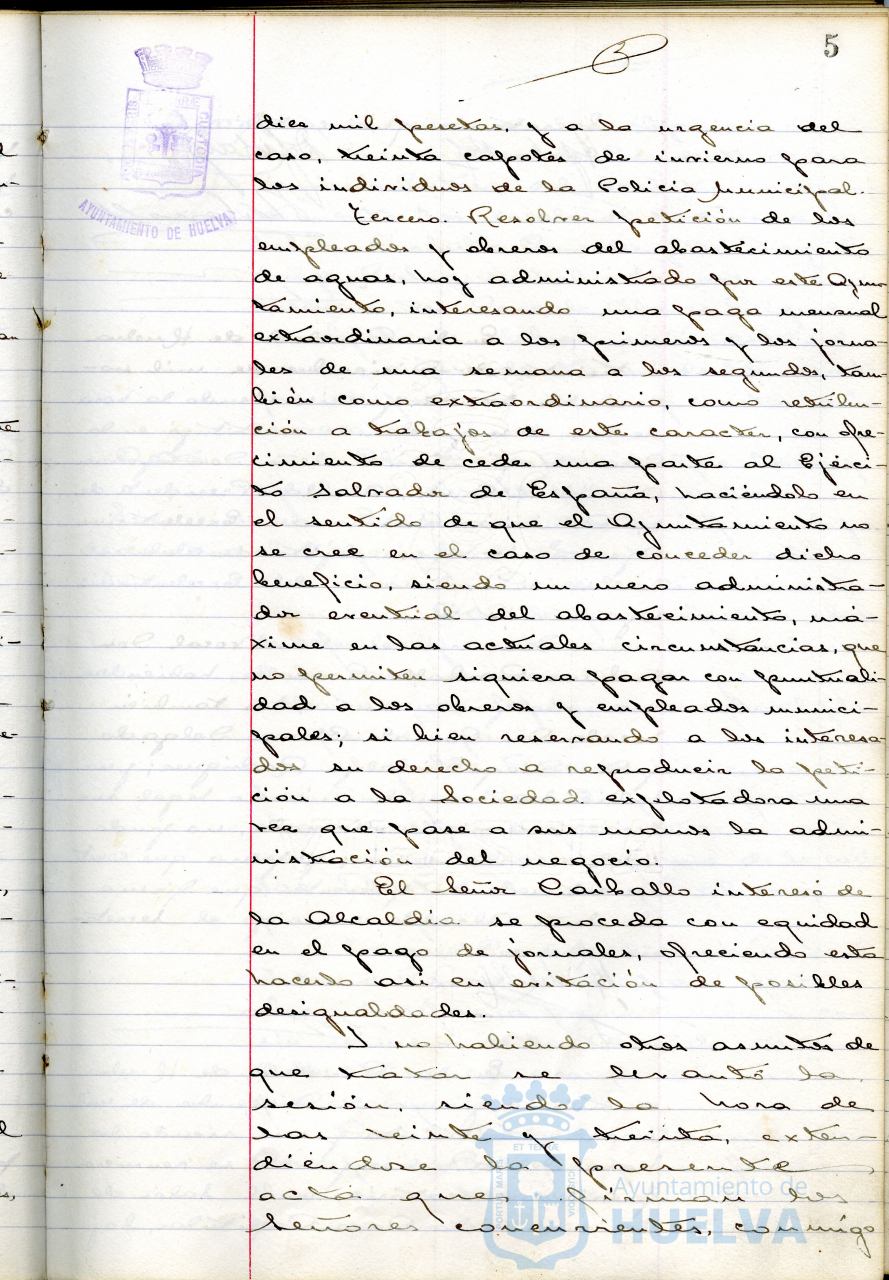 5
diez mil pesetas, y a la urgencia del
caso, treinta capotes de invierno para
los individuos de la Policia Municipal.
Tercero. Resolver petición de los
empleados y obreros del abastecimiento
de aguas, hoy administrado por este Ayun-
tamiento, interesando una paga mensual
extraordinaria a los primeros y los jorna-
les de una semana a los segundos, tam-
bién como extraordinario, como retribu-
ción a trabajos de este caracter, con ofre-
cimiento de ceder una parte al Ejérci-
to Salvador de España, haciéndolo en
el sentido de que el Ayuntamiento no
se cree en el caso de conceder dicho
beneficio, siendo un mero administra-
dor eventual del abastecimiento, má-
xime en las actuales circunstancias, que
no permiten siquiera pagar con puntuali-
dad a los obreros y empleados munici-
pales; si bien reservando a los interesa-
dos su derecho a reproducir la peti-
ción a la Sociedad explotadora una
vez que pase a sus manos la admi-
nistración del negocio.
El Señor Carballo interesó de
la Alcaldia se proceda con equidad
en el pago de jornales, ofreciendo esta
hacerlo asi en evitación de posibles
desigualdades.
Y no habiendo otros asuntos de
que tratar se levantó la
sesión, siendo la hora de
las veinte y treinta, exten-
diéndose la presente
acta que firman los
Señores concurrentes, conmigo
AYUNTAMIENTO DE HUELVA
CUSTODIA
PORTUS MARIS
ET TERRAE
CUSTODIA
Ayuntamiento de
HUELVA